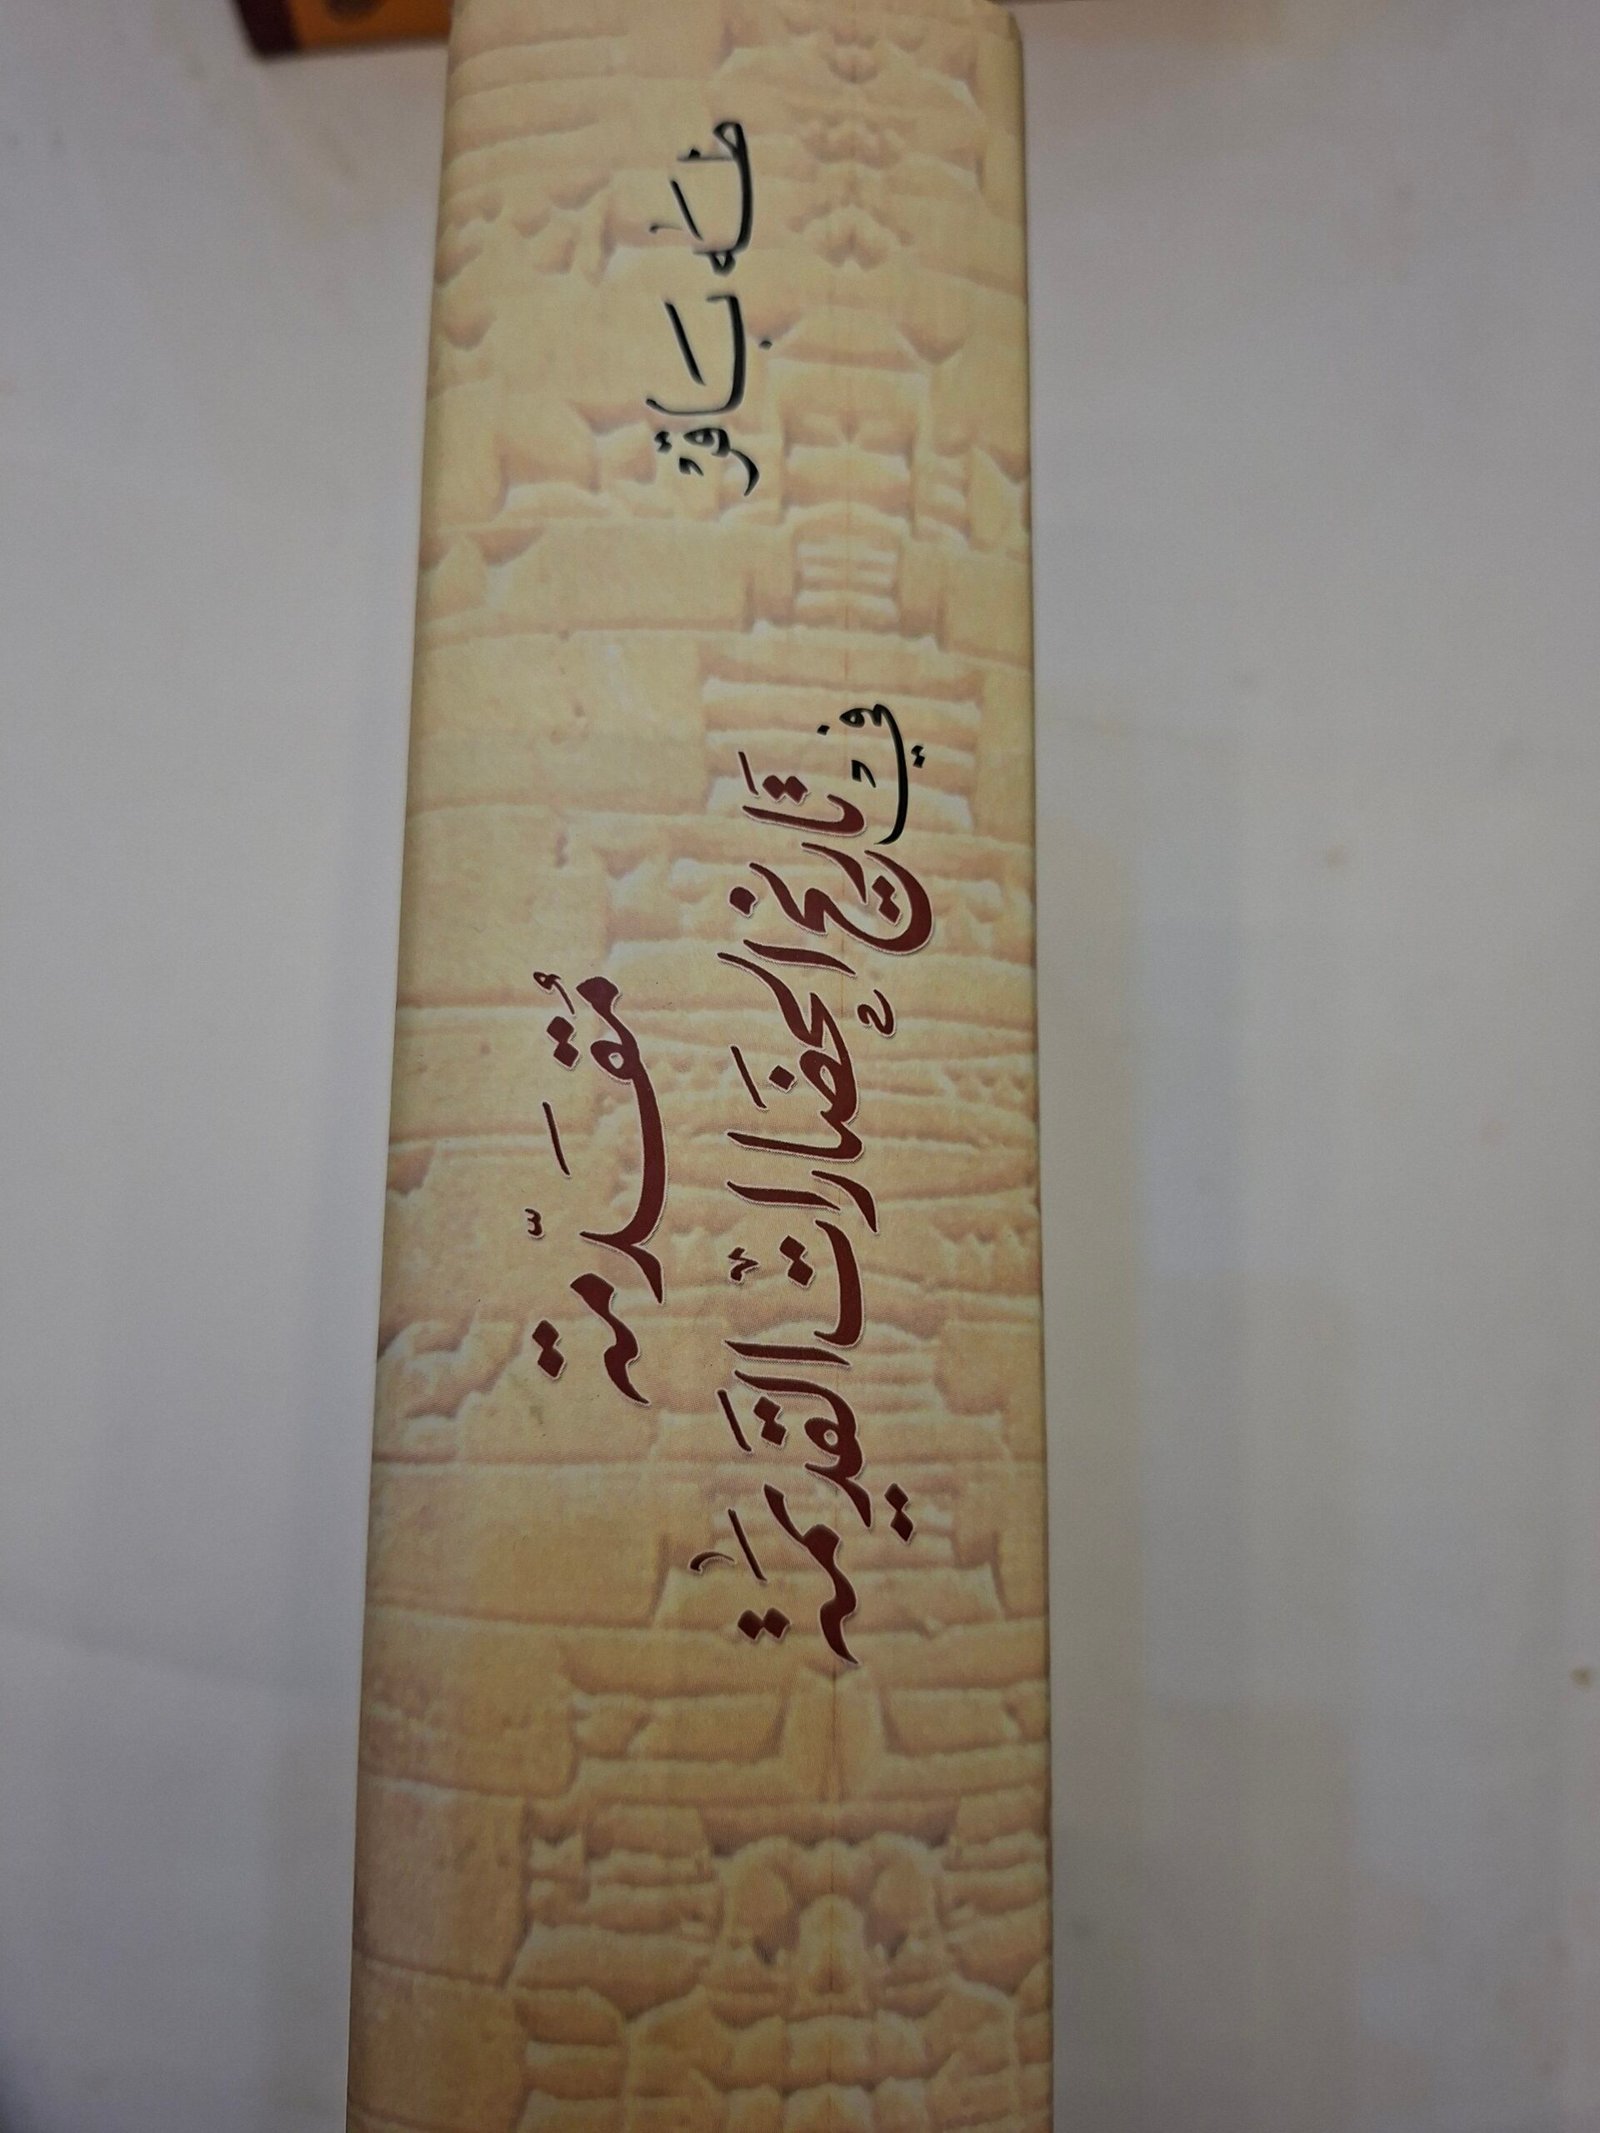 طه باقر
مُقَدّمة
في تَاريخ الحضَارات القَديمَة